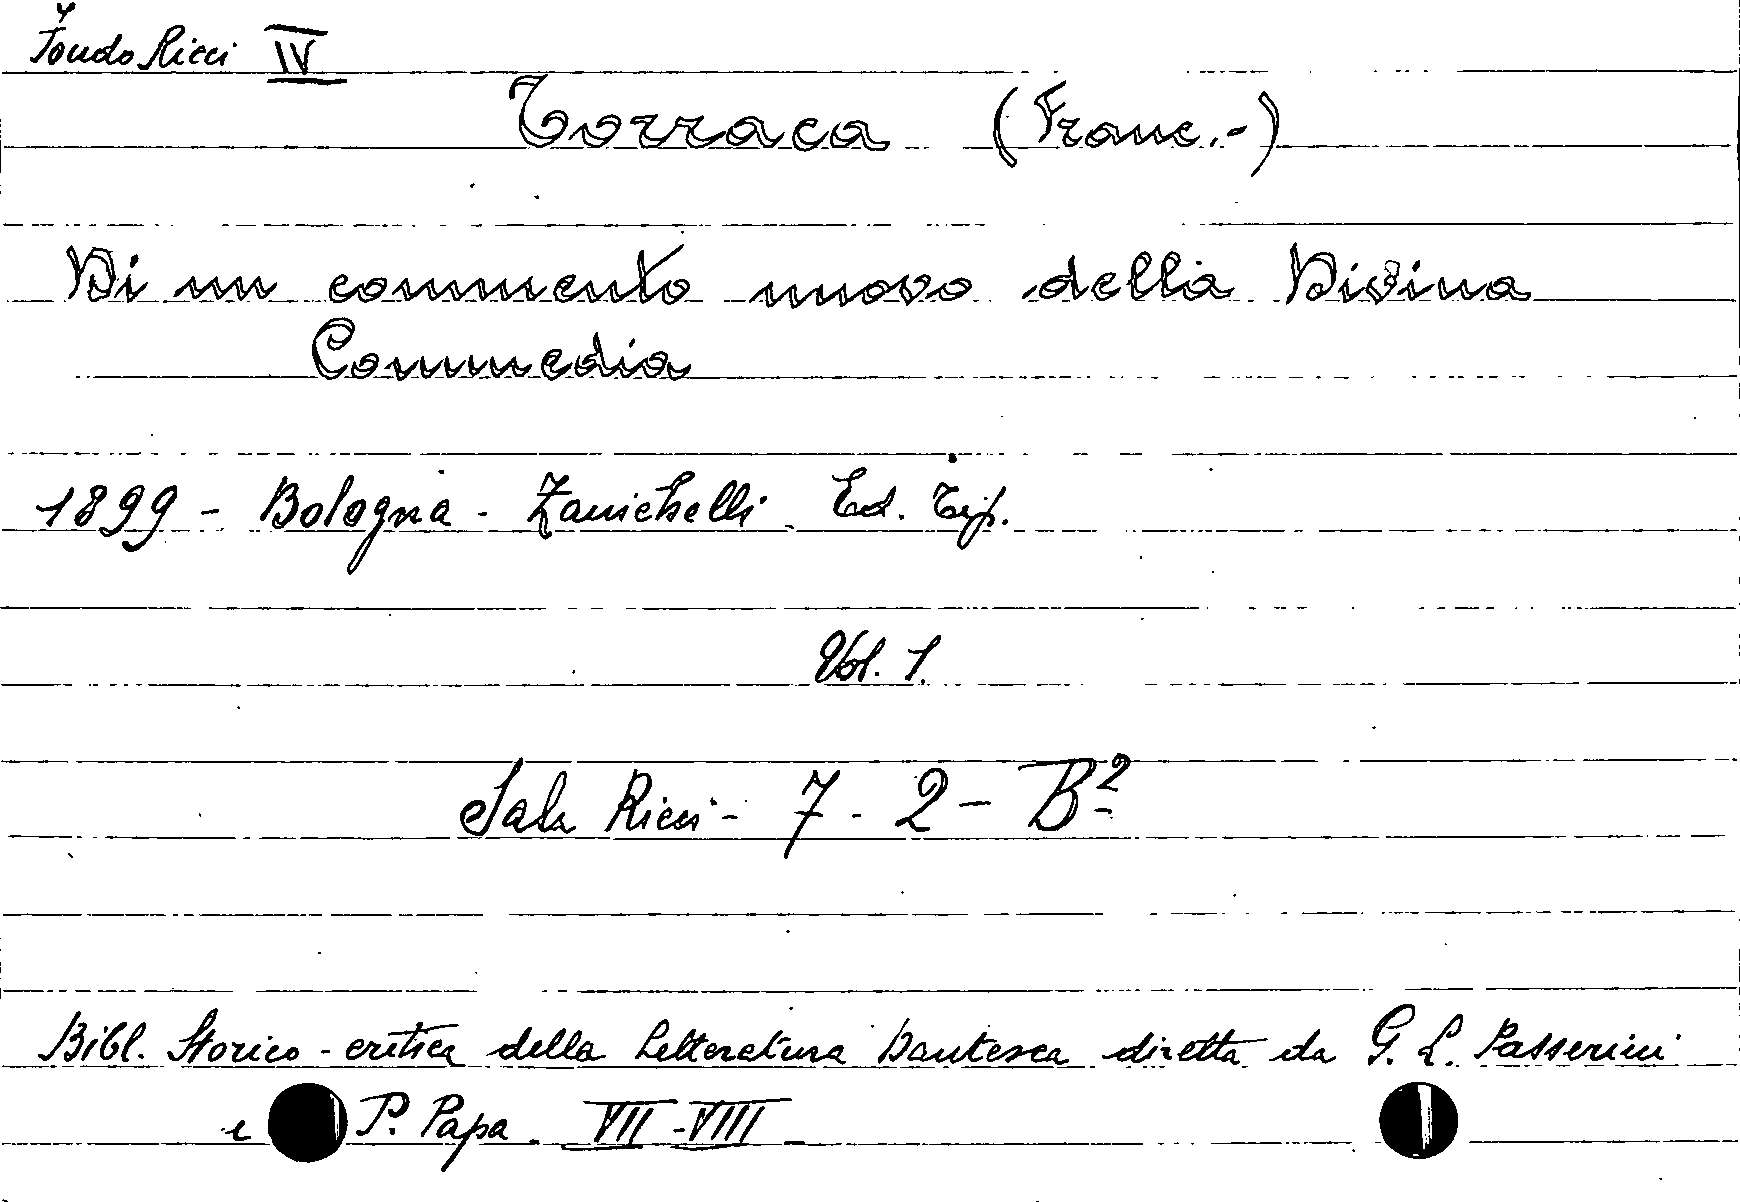 Fondo Ricci IV
Torraca (Franc.-)
Di un commento nuovo della Divina
Commedia
1899 - Bologna - Zanichelli Ed. Tip.
Vol. 1.
Sala Ricci - 7 - 2 - B²
Bibl. Storico-critica della Letteratura Dantesca diretta da G. L. Passerini
e P. Papa. VII-VIII